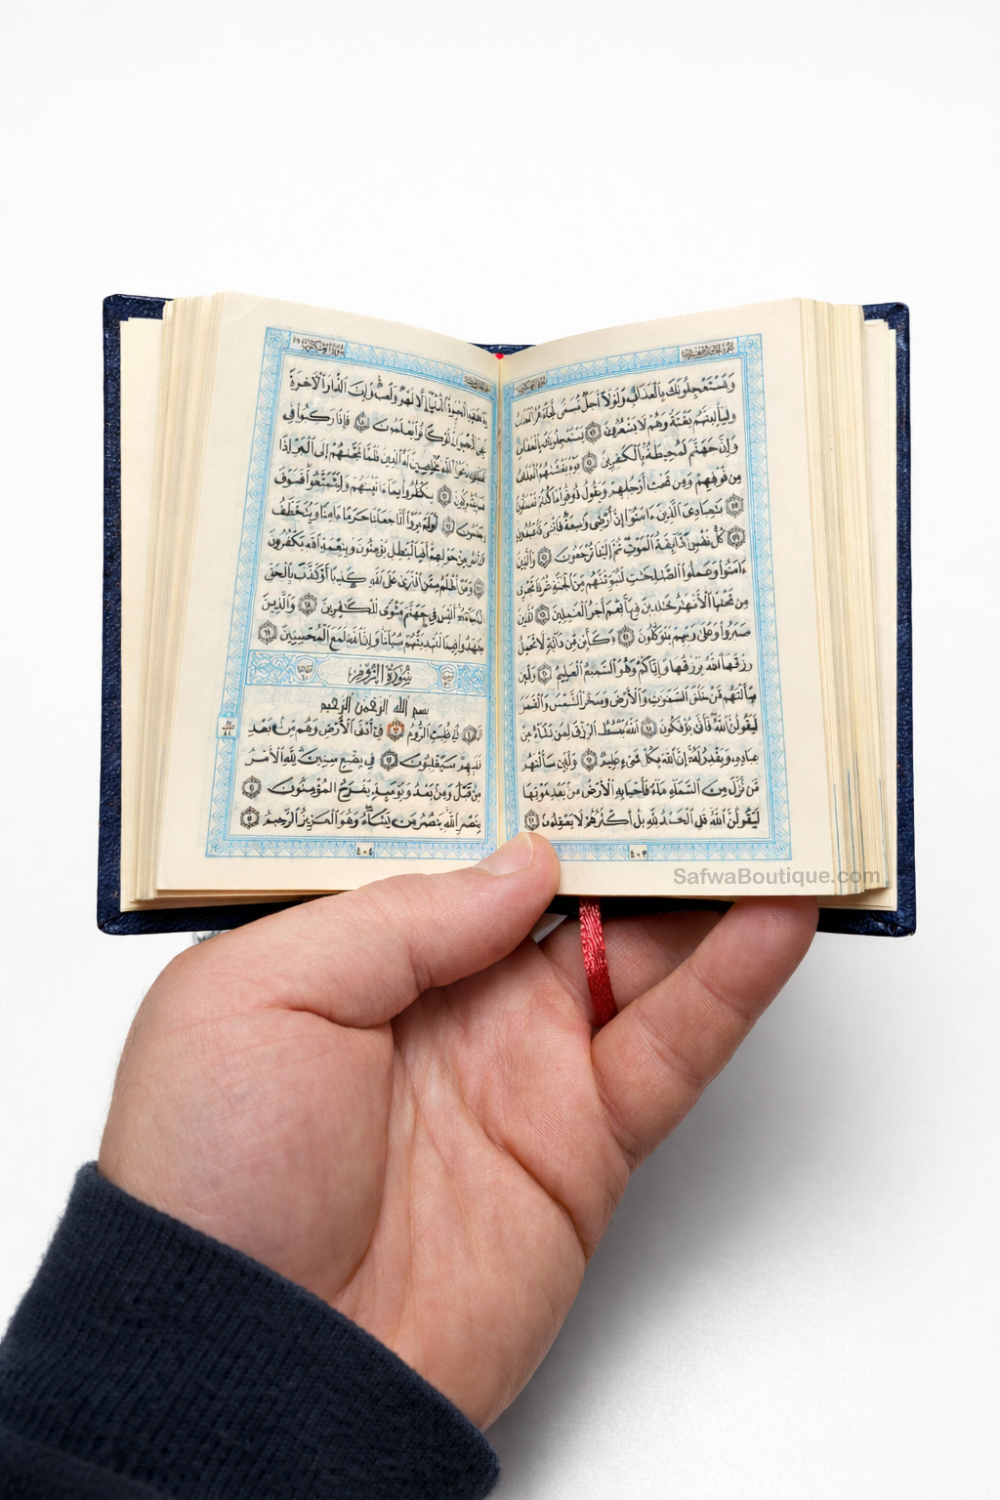 وَيَسْتَعْجِلُونَكَ بِالْعَذَابِ وَلَوْلَا أَجَلٌ مُسَمًّى لَجَاءَهُمُ الْعَذَابُ
وَلَيَأْتِيَنَّهُم بَغْتَةً وَهُمْ لَا يَشْعُرُونَ يَسْتَعْجِلُونَكَ بِالْعَذَابِ
وَإِنَّ جَهَنَّمَ لَمُحِيطَةٌ بِالْكَافِرِينَ يَوْمَ يَغْشَاهُمُ الْعَذَابُ
مِن فَوْقِهِمْ وَمِن تَحْتِ أَرْجُلِهِمْ وَيَقُولُ ذُوقُوا مَا كُنتُمْ تَعْمَلُونَ
يَاعِبَادِيَ الَّذِينَ ءَامَنُوا إِنَّ أَرْضِي وَاسِعَةٌ فَإِيَّايَ فَاعْبُدُونِ
كُلُّ نَفْسٍ ذَائِقَةُ الْمَوْتِ ثُمَّ إِلَيْنَا تُرْجَعُونَ وَالَّذِينَ
ءَامَنُوا وَعَمِلُوا الصَّالِحَاتِ لَنُبَوِّئَنَّهُم مِنَ الْجَنَّةِ غُرَفًا تَجْرِي
مِن تَحْتِهَا الْأَنْهَارُ خَالِدِينَ فِيهَا نِعْمَ أَجْرُ الْعَامِلِينَ الَّذِينَ
صَبَرُوا وَعَلَى رَبِّهِمْ يَتَوَكَّلُونَ وَكَأَيِّن مِن دَابَّةٍ لَا تَحْمِلُ
رِزْقَهَا اللَّهُ يَرْزُقُهَا وَإِيَّاكُمْ وَهُوَ السَّمِيعُ الْعَلِيمُ وَلَئِن
سَأَلْتَهُم مَنْ خَلَقَ السَّمَاوَاتِ وَالْأَرْضَ وَسَخَّرَ الشَّمْسَ وَالْقَمَرَ
لَيَقُولُنَّ اللَّهُ فَأَنَّى يُؤْفَكُونَ اللَّهُ يَبْسُطُ الرِّزْقَ لِمَن يَشَاءُ مِنْ
عِبَادِهِ وَيَقْدِرُ لَهُ إِنَّ اللَّهَ بِكُلِّ شَيْءٍ عَلِيمٌ وَلَئِن سَأَلْتَهُم
مَن نَزَّلَ مِنَ السَّمَاءِ مَاءً فَأَحْيَا بِهِ الْأَرْضَ مِن بَعْدِ مَوْتِهَا
لَيَقُولُنَّ اللَّهُ قُلِ الْحَمْدُ لِلَّهِ بَلْ أَكْثَرُهُمْ لَا يَعْقِلُونَ
٤٠٣
الْحَيَوةُ الدُّنْيَا إِلَّا لَهْوٌ وَلَعِبٌ وَإِنَّ الدَّارَ الْآخِرَةَ
لَهِيَ الْحَيَوَانُ لَوْ كَانُوا يَعْلَمُونَ فَإِذَا رَكِبُوا فِي
اللَّهَ مُخْلِصِينَ لَهُ الدِّينَ فَلَمَّا نَجَّاهُمْ إِلَى الْبَرِّ إِذَا
لِيَكْفُرُوا بِمَا ءَاتَيْنَاهُمْ وَلِيَتَمَتَّعُوا فَسَوْفَ
يَعْلَمُونَ أَوَلَمْ يَرَوْا أَنَّا جَعَلْنَا حَرَمًا ءَامِنًا وَيُتَخَطَّفُ
النَّاسُ مِنْ حَوْلِهِمْ أَفَبِالْبَاطِلِ يُؤْمِنُونَ وَبِنِعْمَةِ اللَّهِ يَكْفُرُونَ
وَمَنْ أَظْلَمُ مِمَّنِ افْتَرَى عَلَى اللَّهِ كَذِبًا أَوْ كَذَّبَ بِالْحَقِّ
أَلَيْسَ فِي جَهَنَّمَ مَثْوًى لِلْكَافِرِينَ وَالَّذِينَ
جَاهَدُوا فِينَا لَنَهْدِيَنَّهُمْ سُبُلَنَا وَإِنَّ اللَّهَ لَمَعَ الْمُحْسِنِينَ
سُورَةُ الرُّومِ
بسم الله الرحمن الرحيم
غُلِبَتِ الرُّومُ فِي أَدْنَى الْأَرْضِ وَهُم مِن بَعْدِ
غَلَبِهِمْ سَيَغْلِبُونَ فِي بِضْعِ سِنِينَ لِلَّهِ الْأَمْرُ
مِن قَبْلُ وَمِن بَعْدُ وَيَوْمَئِذٍ يَفْرَحُ الْمُؤْمِنُونَ
بِنَصْرِ اللَّهِ يَنصُرُ مَن يَشَاءُ وَهُوَ الْعَزِيزُ الرَّحِيمُ
٤٠٤
SafwaBoutique.com